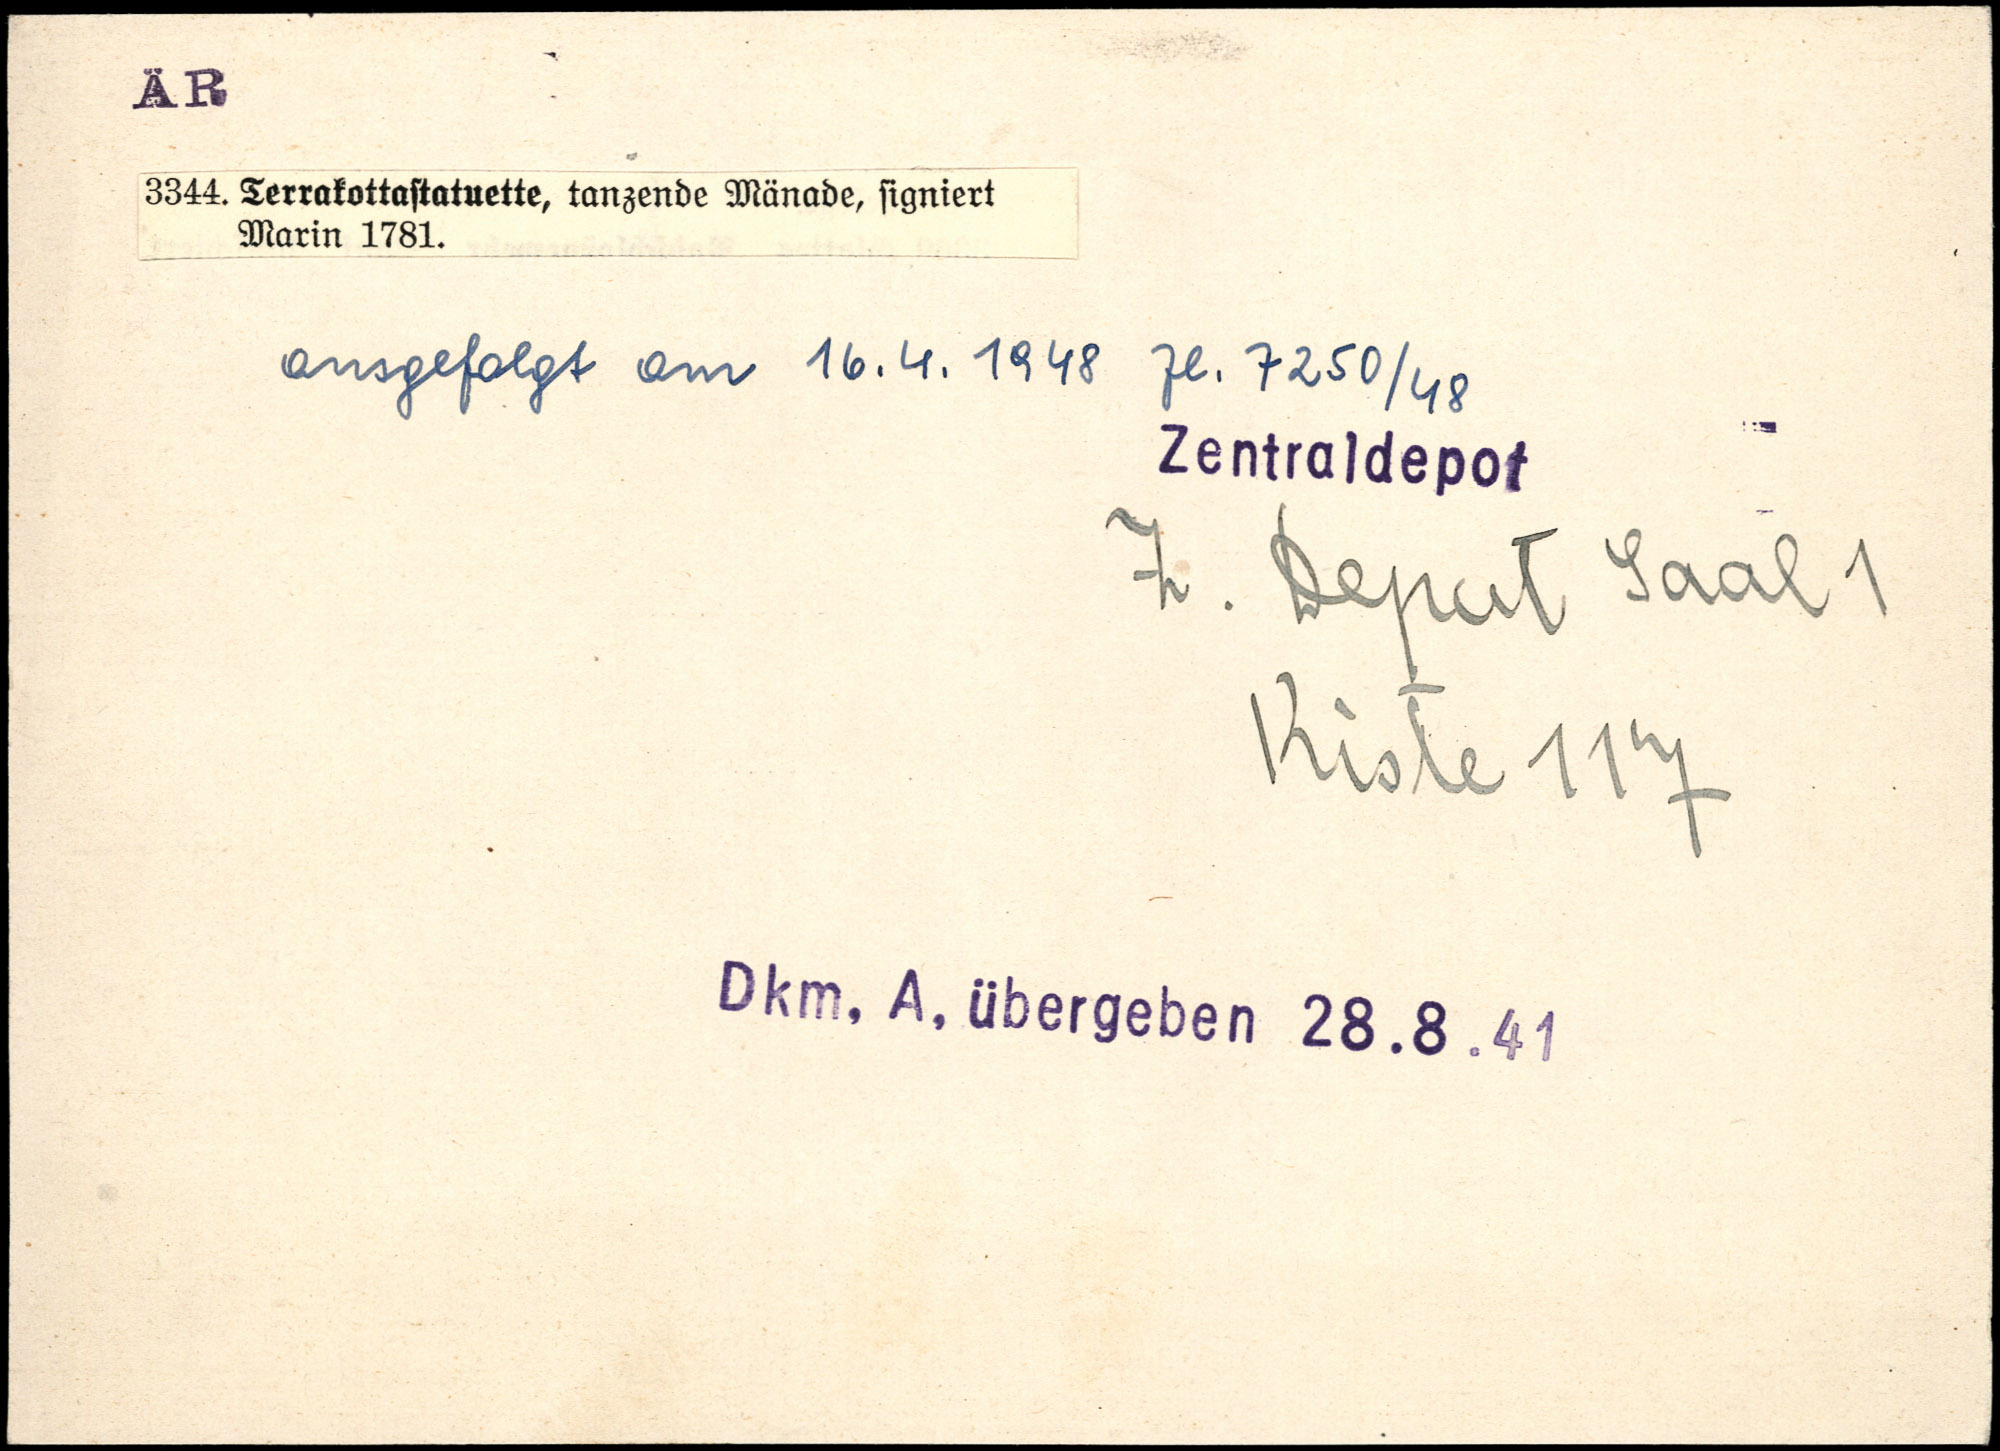 ÄR
3344. Terrakottastatuette, tanzende Mänade, signiert
Marin 1781.
ausgefolgt am 16.4.1948 Zl. 7250/48
Zentraldepot
Z. Depot Saal 1
Kiste 117
Dkm. A. übergeben 28.8.41